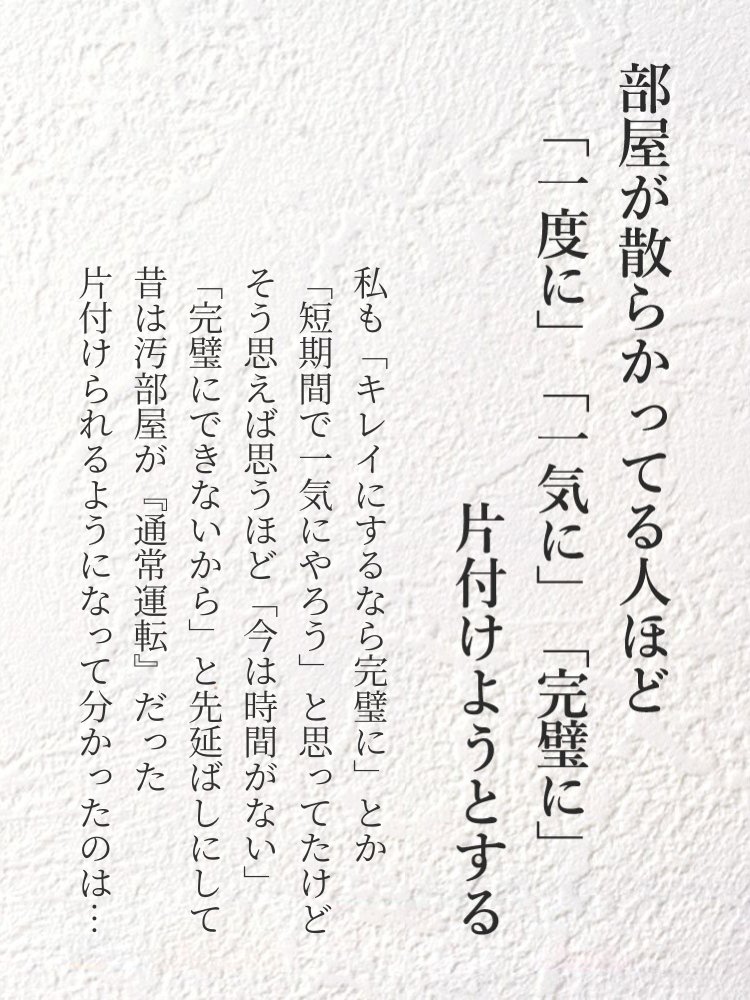 部屋が散らかってる人ほど
「一度に」「一気に」「完璧に」
片付けようとする
私も「キレイにするなら完璧に」とか
「短期間で一気にやろう」と思ってたけど
そう思えば思うほど「今は時間がない」
「完璧にできないから」と先延ばしにして
昔は汚部屋が『通常運転』だった
片付けられるようになって分かったのは…